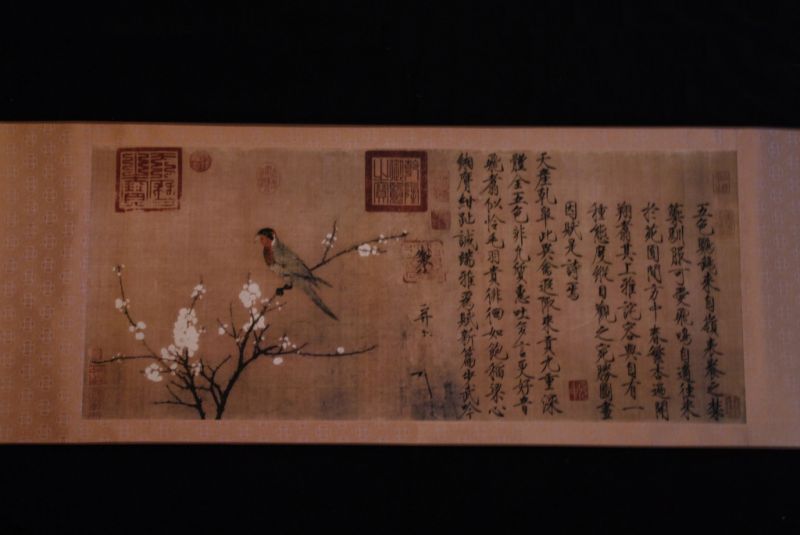 五色鸚鵡來自嶺表養之禁
籞馴服可愛飛鳴自適往來
於苑囿間方中春繁杏遍開
翔翥其上雅詫容與自有一
種態度縱目觀之宛勝圖畫
因賦是詩焉
天產乾皐此異禽遐陬來貢九重深
體全五色非凡質惠吐多言更好音
飛翥似怜毛羽貴徘徊如飽稻粱心
緗膺紺趾誠端雅為賦新篇步武吟